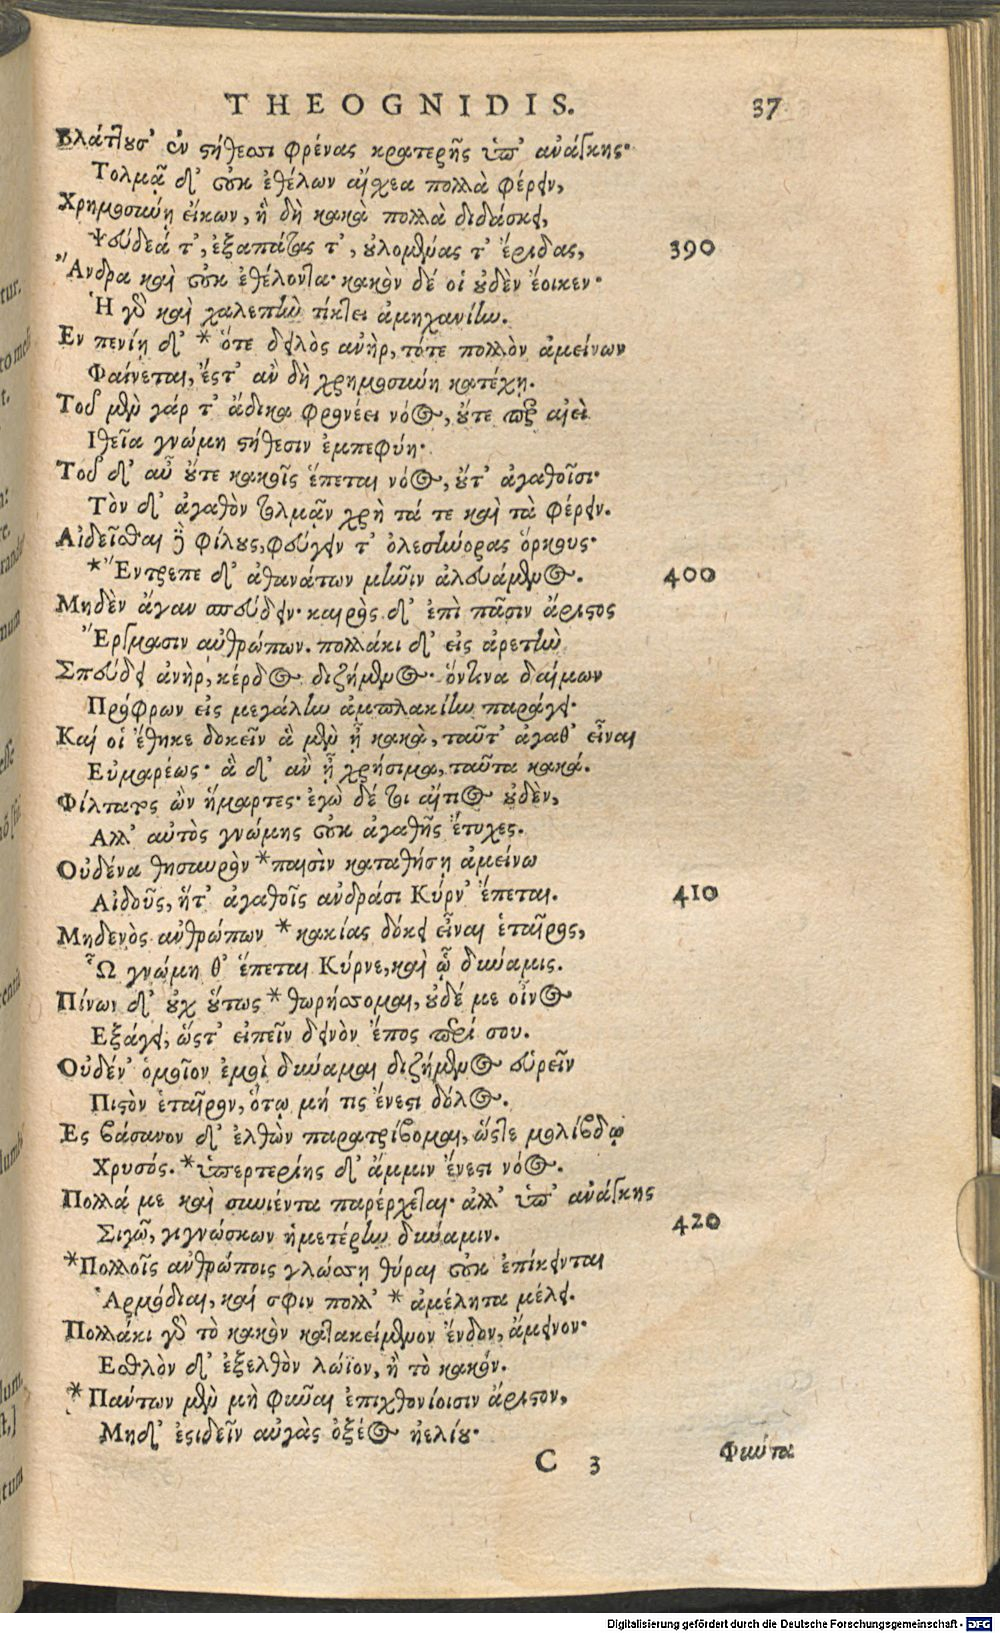 THEOGNIDIS. 37
Βλάπτουσ' ἐν στήθεσσι φρένας κρατερῆς ὑπ' ἀνάγκης·
Τολμᾷ δ' οὐκ ἐθέλων αἴσχεα πολλὰ φέρειν,
Χρημοσύνῃ εἴκων, ἣ δὴ κακὰ πολλὰ διδάσκει,
Ψεύδεά τ', ἐξαπάτας τ', οὐλομένας τ' ἔριδας, 390
Ἄνδρα καὶ οὐκ ἐθέλοντα· κακὸν δέ οἱ οὐδὲν ἔοικεν·
Ἡ γὰρ καὶ χαλεπὴν τίκτει ἀμηχανίην.
Εν πενίῃ δ' * ὅτε δειλὸς ἀνὴρ, τότε πολλὸν ἀμείνων
Φαίνεται, ἔστ' ἂν δὴ χρημοσύνη κατέχῃ.
Τοῦ μὲν γάρ τ' ἄδικα φρονέει νόος, οὔτε περ αἰεὶ
Ιθεῖα γνώμη στήθεσιν ἐμπεφύῃ·
Τοῦ δ' αὖ οὔτε κακοῖς ἕπεται νόος, οὔτ' ἀγαθοῖσι·
Τὸν δ' ἀγαθὸν τολμᾷν χρὴ τά τε καὶ τὰ φέρειν.
Αἰδεῖσθαι δὲ φίλους, φεύγειν τ' ὀλεσήνορας ὅρκους·
*Ἔντρεπε δ' ἀθανάτων μῆνιν ἀλευάμενος. 400
Μηδὲν ἄγαν σπεύδειν· καιρὸς δ' ἐπὶ πᾶσιν ἄριστος
Ἔργμασιν ἀνθρώπων. πολλάκι δ' εἰς ἀρετὴν
Σπεύδει ἀνὴρ, κέρδος διζήμενος· ὅντινα δαίμων
Πρόφρων εἰς μεγάλην ἀμπλακίην παράγει·
Καί οἱ ἔθηκε δοκεῖν ἃ μὲν ᾖ κακὰ, ταῦτ' ἀγαθ' εἶναι
Εὐμαρέως· ἃ δ' ἂν ᾖ χρήσιμα, ταῦτα κακά.
Φίλτατος ὢν ἥμαρτες· ἐγὼ δέ τοι αἴτιος οὐδὲν,
Αλλ' αὐτὸς γνώμης οὐκ ἀγαθῆς ἔτυχες.
Οὐδένα θησαυρὸν *παισὶν καταθήσῃ ἀμείνω
Αἰδοῦς, ἥτ' ἀγαθοῖς ἀνδράσι Κύρν' ἕπεται. 410
Μηδενὸς ἀνθρώπων *κακίας δόκει εἶναι ἑταῖρος,
Ὧ γνώμη θ' ἕπεται Κύρνε, καὶ ᾧ δύναμις.
Πίνων δ' οὐχ οὕτως *θωρήσσομαι, οὐδέ με οἶνος
Εξάγει, ὥστ' εἰπεῖν δεινὸν ἔπος περί σου.
Οὐδέν' ὁμοῖον ἐμοὶ δύναμαι διζήμενος εὑρεῖν
Πιστὸν ἑταῖρον, ὅτῳ μή τις ἔνεστι δόλος.
Ες βάσανον δ' ἐλθὼν παρατρίβομαι, ὥστε μολίβδῳ
Χρυσός. *ὑπερτερίης δ' ἄμμιν ἔνεστι νόος.
Πολλά με καὶ συνιέντα παρέρχεται· ἀλλ' ὑπ' ἀνάγκης
Σιγῶ, γιγνώσκων ἡμετέρην δύναμιν. 420
*Πολλοῖς ἀνθρώποις γλώσσῃ θύραι οὐκ ἐπίκεινται
Ἁρμόδιαι, καί σφιν πολλ' * ἀμέλητα μέλει.
Πολλάκι γὰρ τὸ κακὸν κατακείμενον ἔνδον, ἄμεινον·
Εσθλὸν δ' ἐξελθὸν λώϊον, ἢ τὸ κακόν.
*Πάντων μὲν μὴ φῦναι ἐπιχθονίοισιν ἄριστον,
Μηδ' ἐσιδεῖν αὐγὰς ὀξέος ἠελίου·
C 3 Φύντα
Digitalisierung gefördert durch die Deutsche Forschungsgemeinschaft - DFG